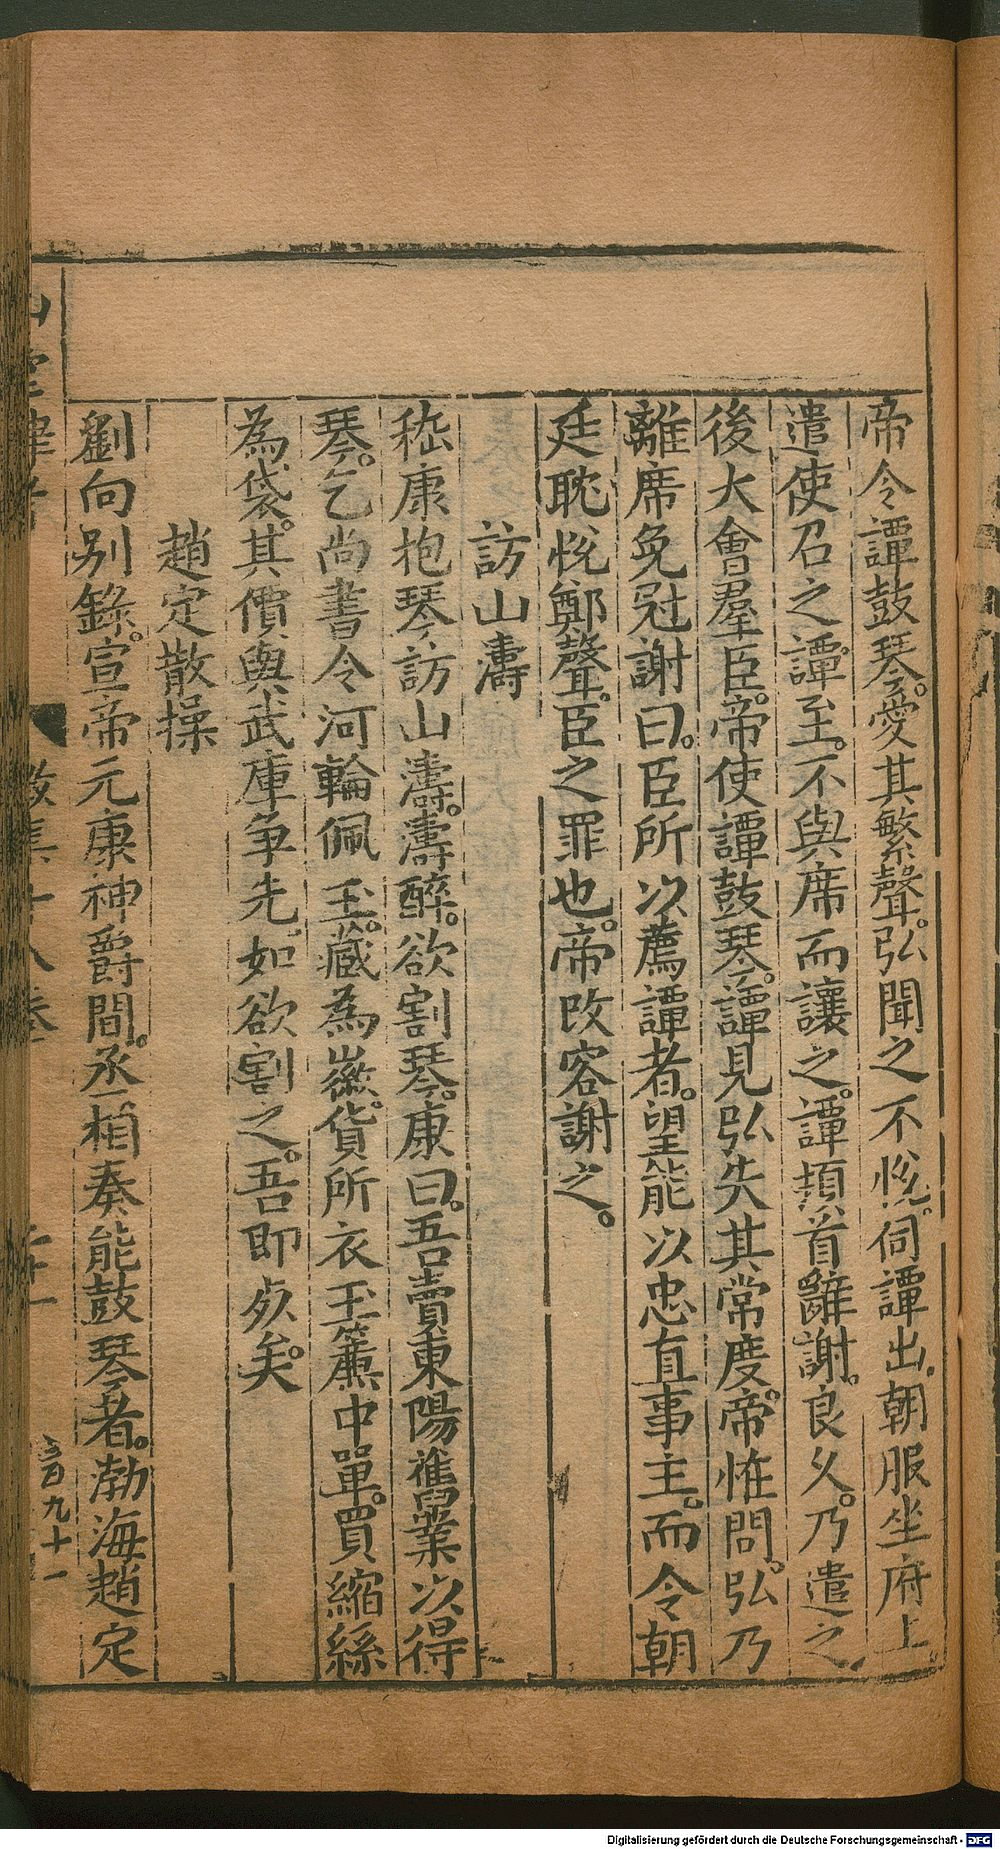 帝令譚鼓琴。愛其繁聲。弘聞之不悅。伺譚出。朝服坐府上
遣使召之。譚至。不與席而讓之。譚頓首辭謝。良久。乃遣之
後大會羣臣。帝使譚鼓琴。譚見弘失其常度。帝恠問。弘乃
離席免冠謝曰。臣所以薦譚者。望能以忠直事主。而令朝
廷耽悅鄭聲。臣之罪也。帝改容謝之。
訪山濤
嵇康抱琴訪山濤。濤醉。欲割琴。康曰。吾賣東陽舊業以得
琴。乞尚書令河輪佩玉。藏為徽。貨所衣玉簾中單。買縮絲
為袋。其價與武庫争先。如欲割之。吾即死矣。
趙定散操
劉向别錄。宣帝元康神爵間。丞相奏能鼓琴者。渤海趙定
山堂肆考
徵集十八卷
二十一
三百九十一
Digitalisierung gefördert durch die Deutsche Forschungsgemeinschaft - DFG